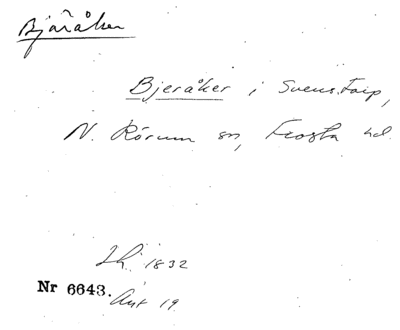 Bjäråker
Bjeråker i Svenstorp,
N. Rörum sn, Frosta hd.
Lh. 1832
Nr 6643. Akt 19